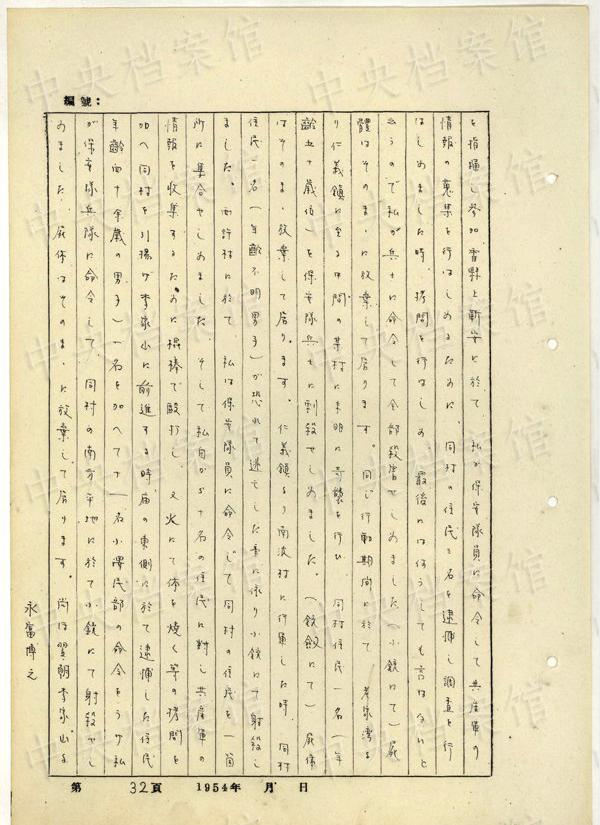 編號：
を指揮し参加 香縣上新安に於て 私が保安隊員に命令して共産軍の
情報の蒐集を行はしめるために、同村の住民 名を逮捕し調査を行
はしめました時、拷問を行はしめ 最後には何うしても言はないと
云うので私が兵士に命令して全部殺害せしめました（小銃にて）屍
體はそのまゝに放棄して居ります。同じ行動期間に於て
り仁義鎮に至る中間の某村に未明に奇襲を行ひ 同村住民一名（年
齢五十歳位）を保安隊兵士に刺殺せしめました。（銃劍にて）屍体
はそのまゝ放棄して居ります。仁義鎮より南 村に行軍した時、同村
住民一名（年齢不明男子）が恐れて逃亡した事に依り小銃にて射殺し
ました。 村に於て 私は保安隊員に命令して同村の住民を一箇
所に集合せしめました。そして私自から十名の住民に對し共産軍の
情報を收集するために棍棒で毆打し 又火にて体を焼く等の拷問を
加へ同村を引揚げ李家山に前進する時廟の東側に於て逮捕した住民
年齢四十余歳の男子）一名を加へて十一名小澤民部の命令をうけ私
が保安隊兵隊に命令して、同村の南方 地に於て小銃にて射殺せし
めました。屍体はそのまゝに放棄して居ります。尚ほ翌朝李家山よ
永富博之
第 32頁 1954年 月 日
中央档案馆